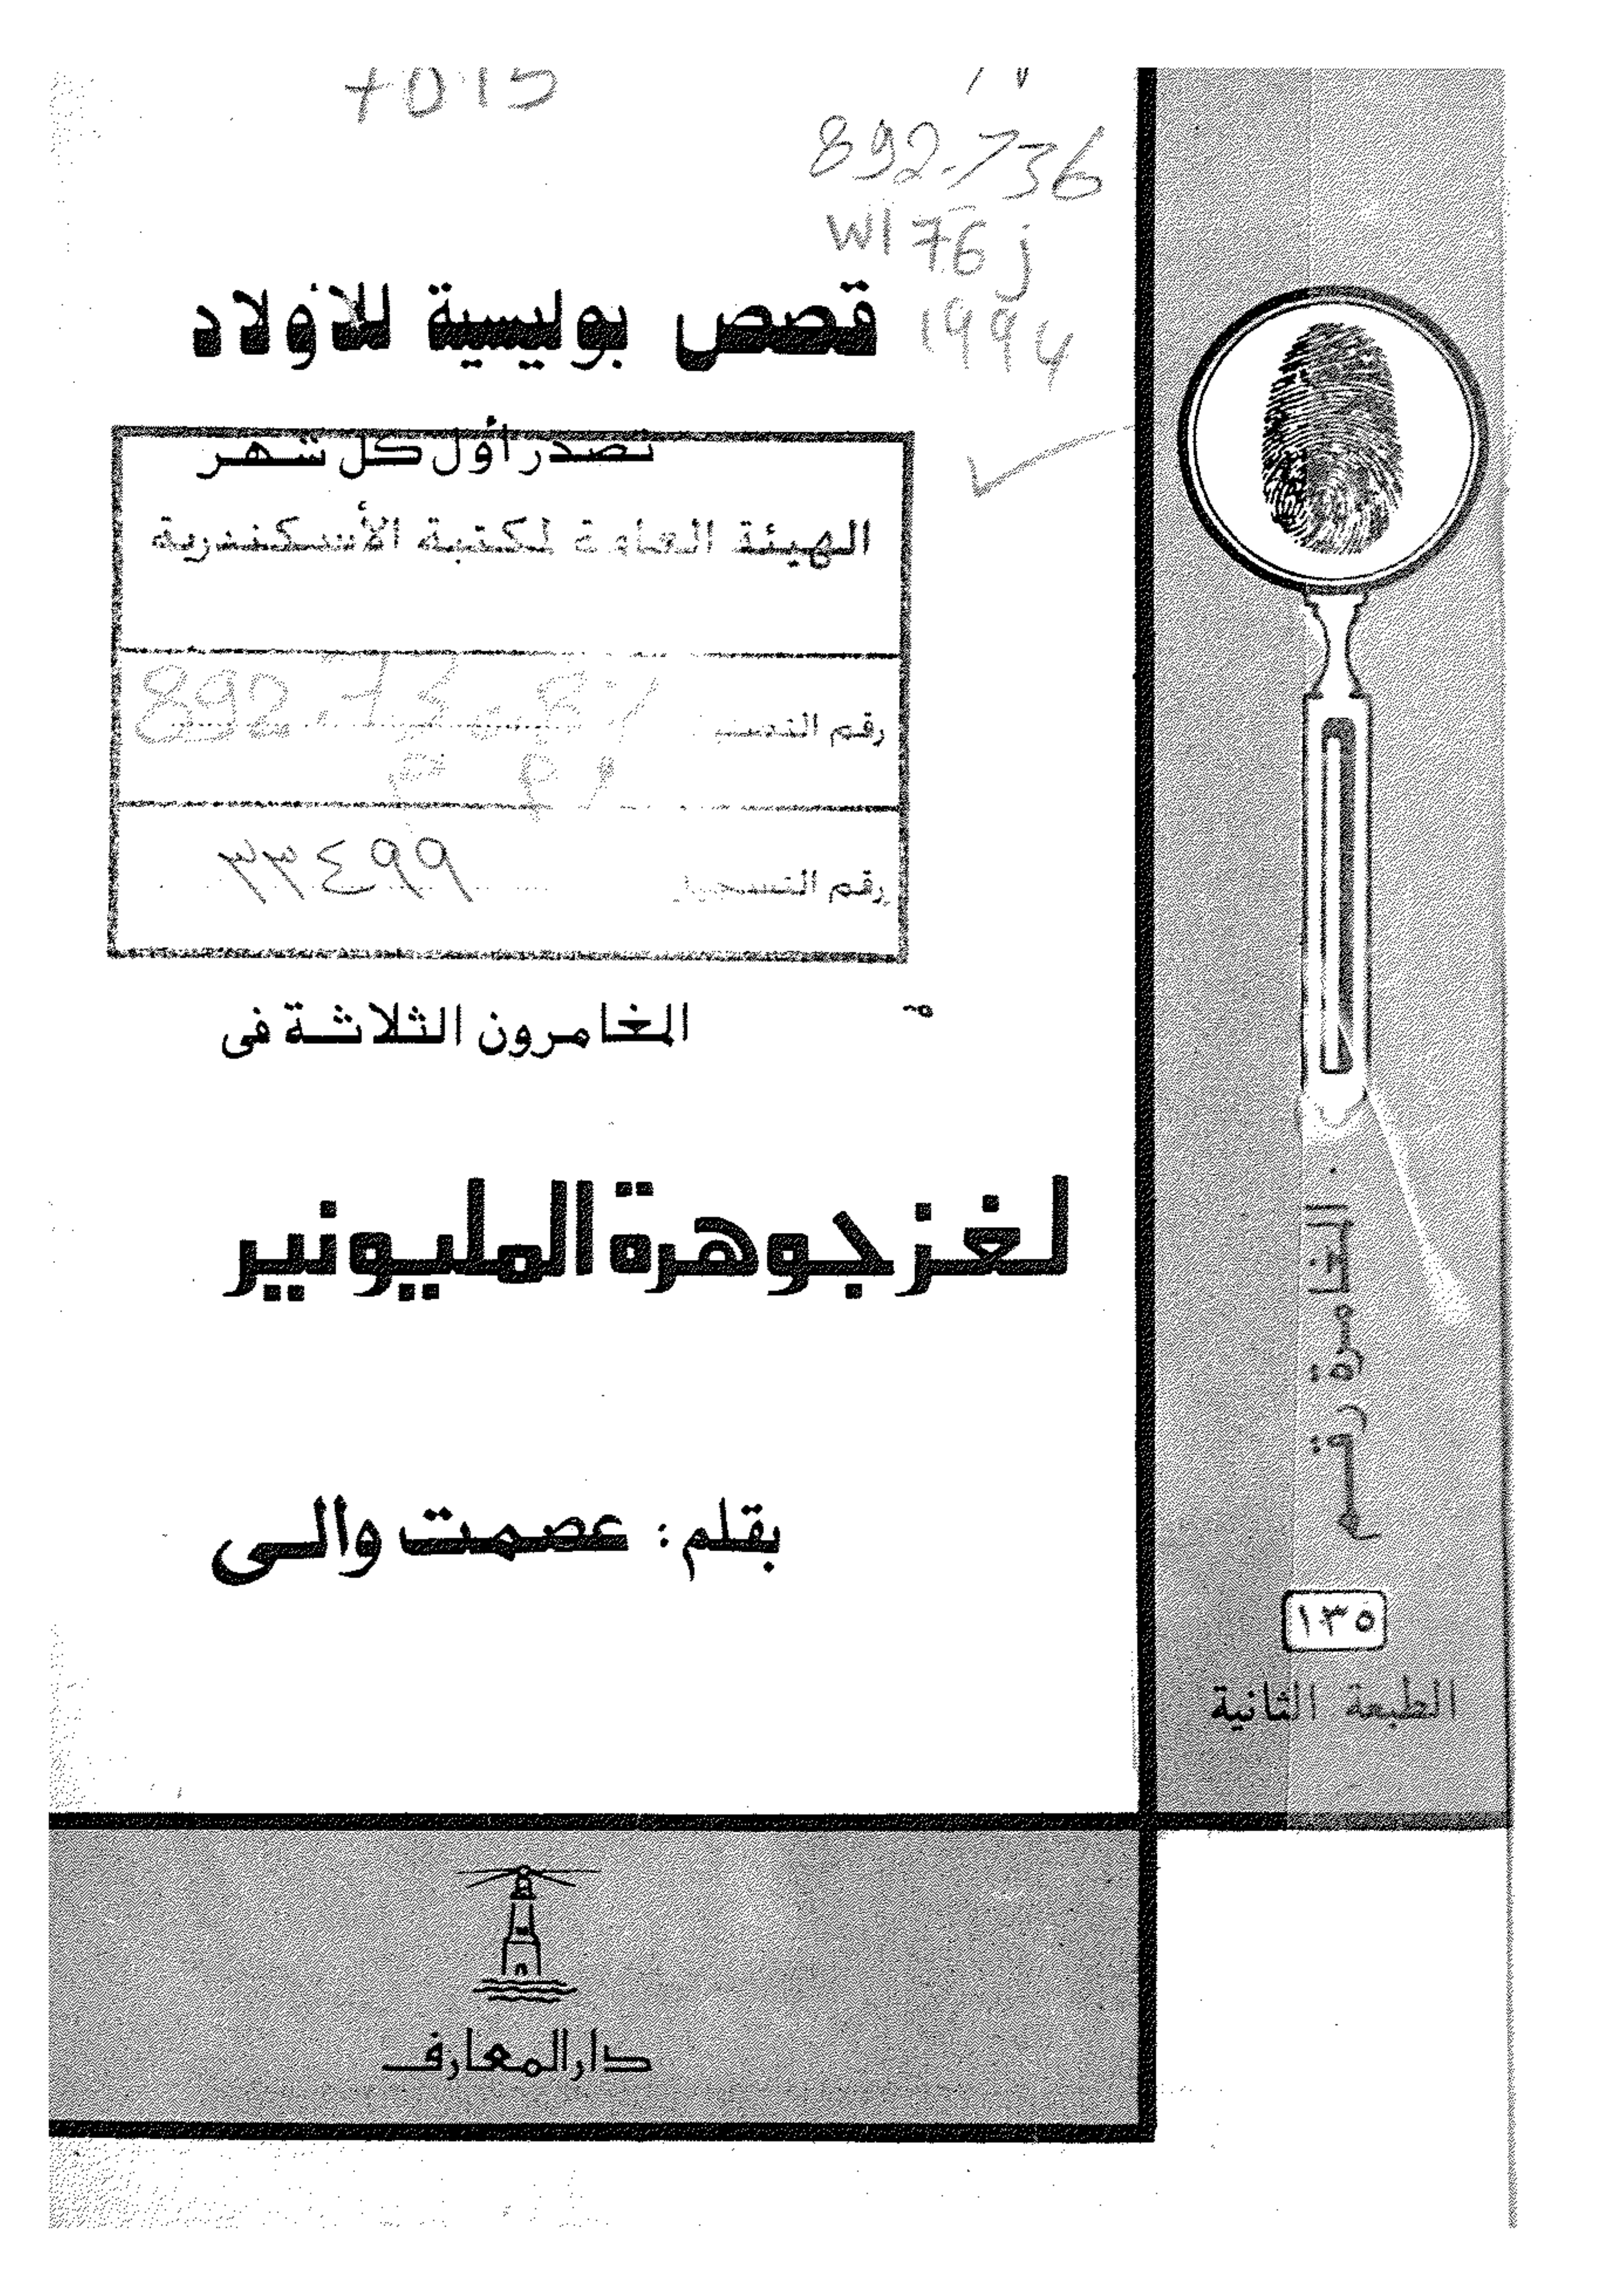 892.736
W176j
1994
قصص بوليسية للأولاد
تصدر أول كل شهر
الهيئة العامة لمكتبة الأسكندرية
رقم التصنيف
رقم التسجيل ٣٣٤٩٩
المغامرون الثلاثة فى
لغز جوهرة المليونير
بقلم : عصمت والى
المغامرة رقم
١٣٥
الطبعة الثانية
دار المعارف